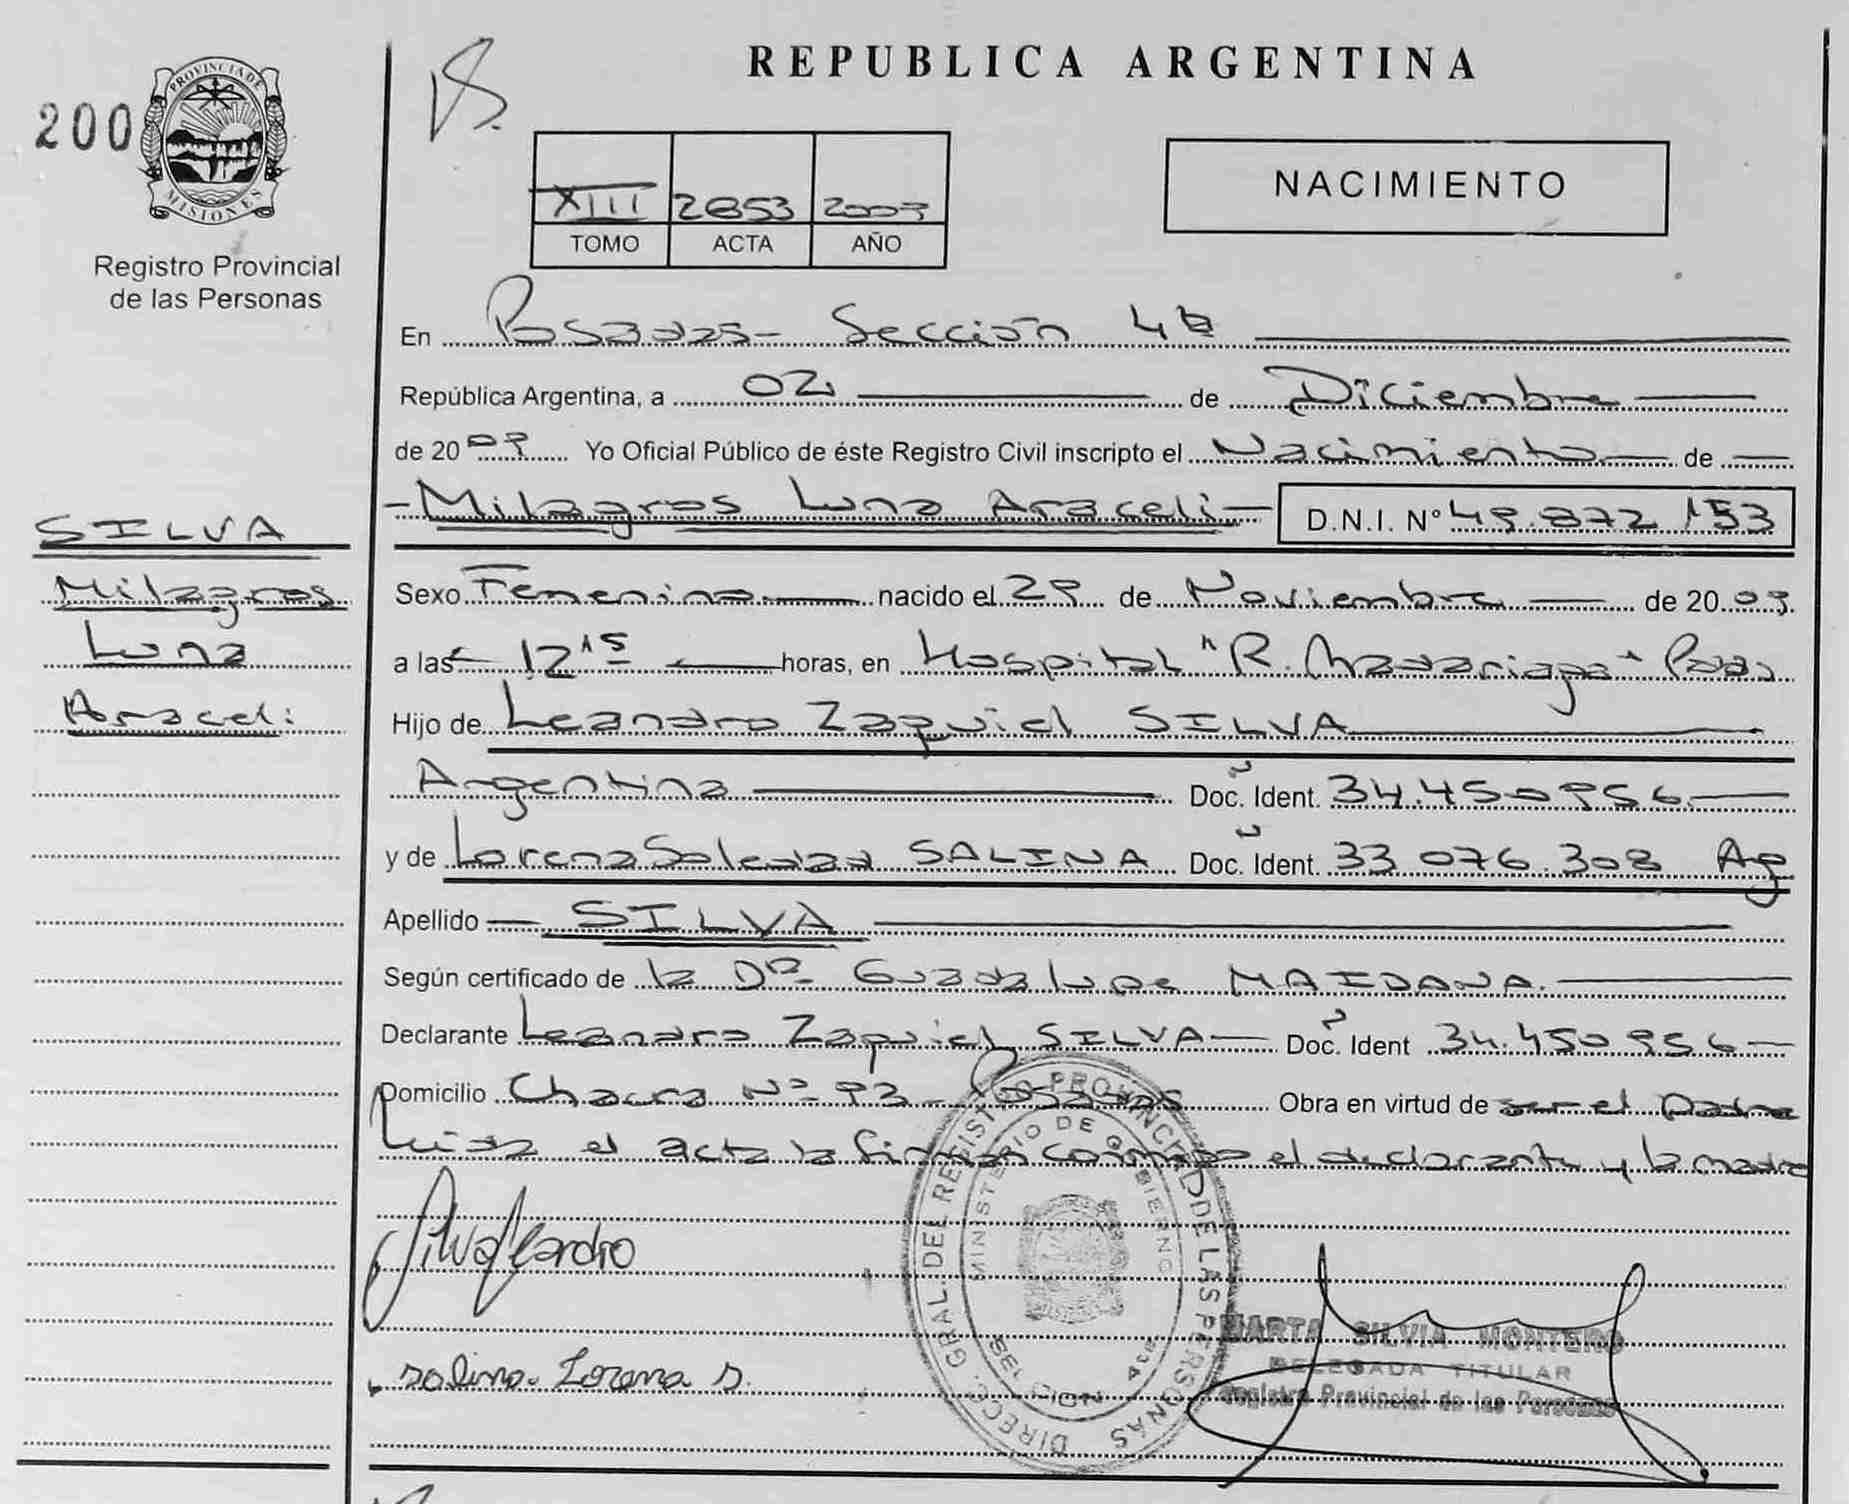 REPUBLICA ARGENTINA
200
PROVINCIA DE
MISIONES
Registro Provincial
de las Personas
XIII 2853 2009
TOMO ACTA AÑO
NACIMIENTO
En Posadas - Sección 4ta
República Argentina, a 02 de Diciembre
de 2009 Yo Oficial Público de éste Registro Civil inscripto el Nacimiento de
- Milagros Luna Araceli - D.N.I. N° 49.872.153
SILVA
Milagros
Luna
Araceli
Sexo Femenino nacido el 29 de Noviembre de 2009
a las 12 15 horas, en Hospital "R. Madariaga" Pdas
Hijo de Leandro Zaquiel SILVA
Argentina Doc. Ident. 34.450.956
y de Lorena Soledad SALINA Doc. Ident. 33.076.308 Ag
Apellido SILVA
Según certificado de la Dra. Guadalupe MAIDANA
Declarante Leandro Zaquiel SILVA Doc. Ident 34.450.956
Domicilio Chacra Nº 93 - Posadas Obra en virtud de ser el padre
Leída el acta la firman conmigo el declarante y la madre
Silva Leandro
DIRECC. GRAL. DEL REGISTRO PROVINCIAL DE LAS PERSONAS
MINISTERIO DE GOBIERNO
MARTA SILVIA MONTERO
DELEGADA TITULAR
Registro Provincial de las Personas
Salina Lorena S.